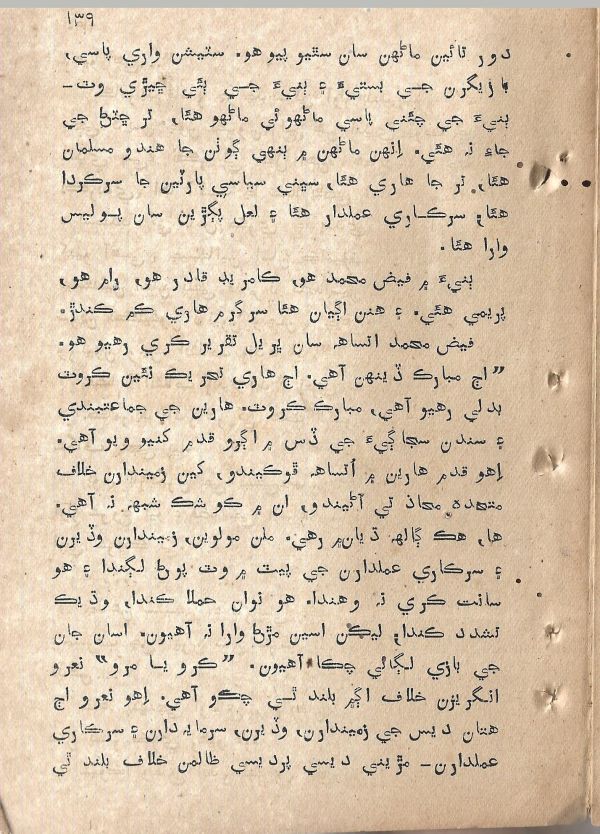 ١٣٩
دور تائين ماڻهن سان سٿيو پيو هو. سٽيشن واري پاسي،
بازيگرن جي بستيءَ ۽ ٻنيءَ جي ٻٿي ڇيڙي وٽ_
ٻنيءَ جي چئني پاسي ماڻهوئي ماڻهو هئا، تر ڇٽڻ جي
جاءِ نہ هئي. انهن ماڻهن ۾ ٻنهي ڳوٺن جا هندو مسلمان
هئا، تر جا هاري هئا، سڀني سياسي پارٽين جا سرڪردا
هئا، سرڪاري عملدار هئا ۽ لعل پڳڙين سان پوليس
وارا هئا.
ٻنيءَ ۾ فيض محمد هو، ڪامريڊ قادر هو، رام هو،
پريمي هئي. ۽ هنن اڳيان هئا سرگرم هاري ڪم ڪندڙ.
فيض محمد اتساهہ سان ڀريل تقرير ڪري رهيو هو.
”اڄ مبارڪ ڏينهن آهي. اڄ هاري تحريڪ نئين ڪروٽ
بدلي رهيو آهي، مبارڪ ڪروٽ. هارين جي جماعتبندي
۽ سندن سجاڳيءَ جي ڏس ۾ اڳرو قدم کنيو ويو آهي.
اهو قدم هارين ۾ اُتساهہ ڦوڪيندو، کين زميندارن خلاف
متحده محاذ تي آڻيندو، ان ۾ ڪو شڪ شبهہ نہ آهي.
ها، هڪ ڳالهہ ڌيان۾ رهي. ملن مولوين، زميندارن وڏيرن
۽ سرڪاري عملدارن جي پيٽ ۾ وٽ پوڻ لڳندا ۽ هو
سانت ڪري نہ وهندا. هو نوان حملا ڪندا، وڌيڪ
تشدد ڪندا، ليڪن اسين مڙڻ وارا نہ آهيون. اسان جان
جي بازي لڳائي چڪا آهيون. ”ڪرو يا مرو“ نعرو
انگريزن خلاف اڳ۾ بلند ٿي چڪو آهي. اهو نعرو اڄ
هتان ديس جي زميندارن، وڏيرن، سرمايہ دارن ۽ سرڪاري
عملدارن_ مڙيني ديسي پرديسي ظالمن خلاف بلند ٿي